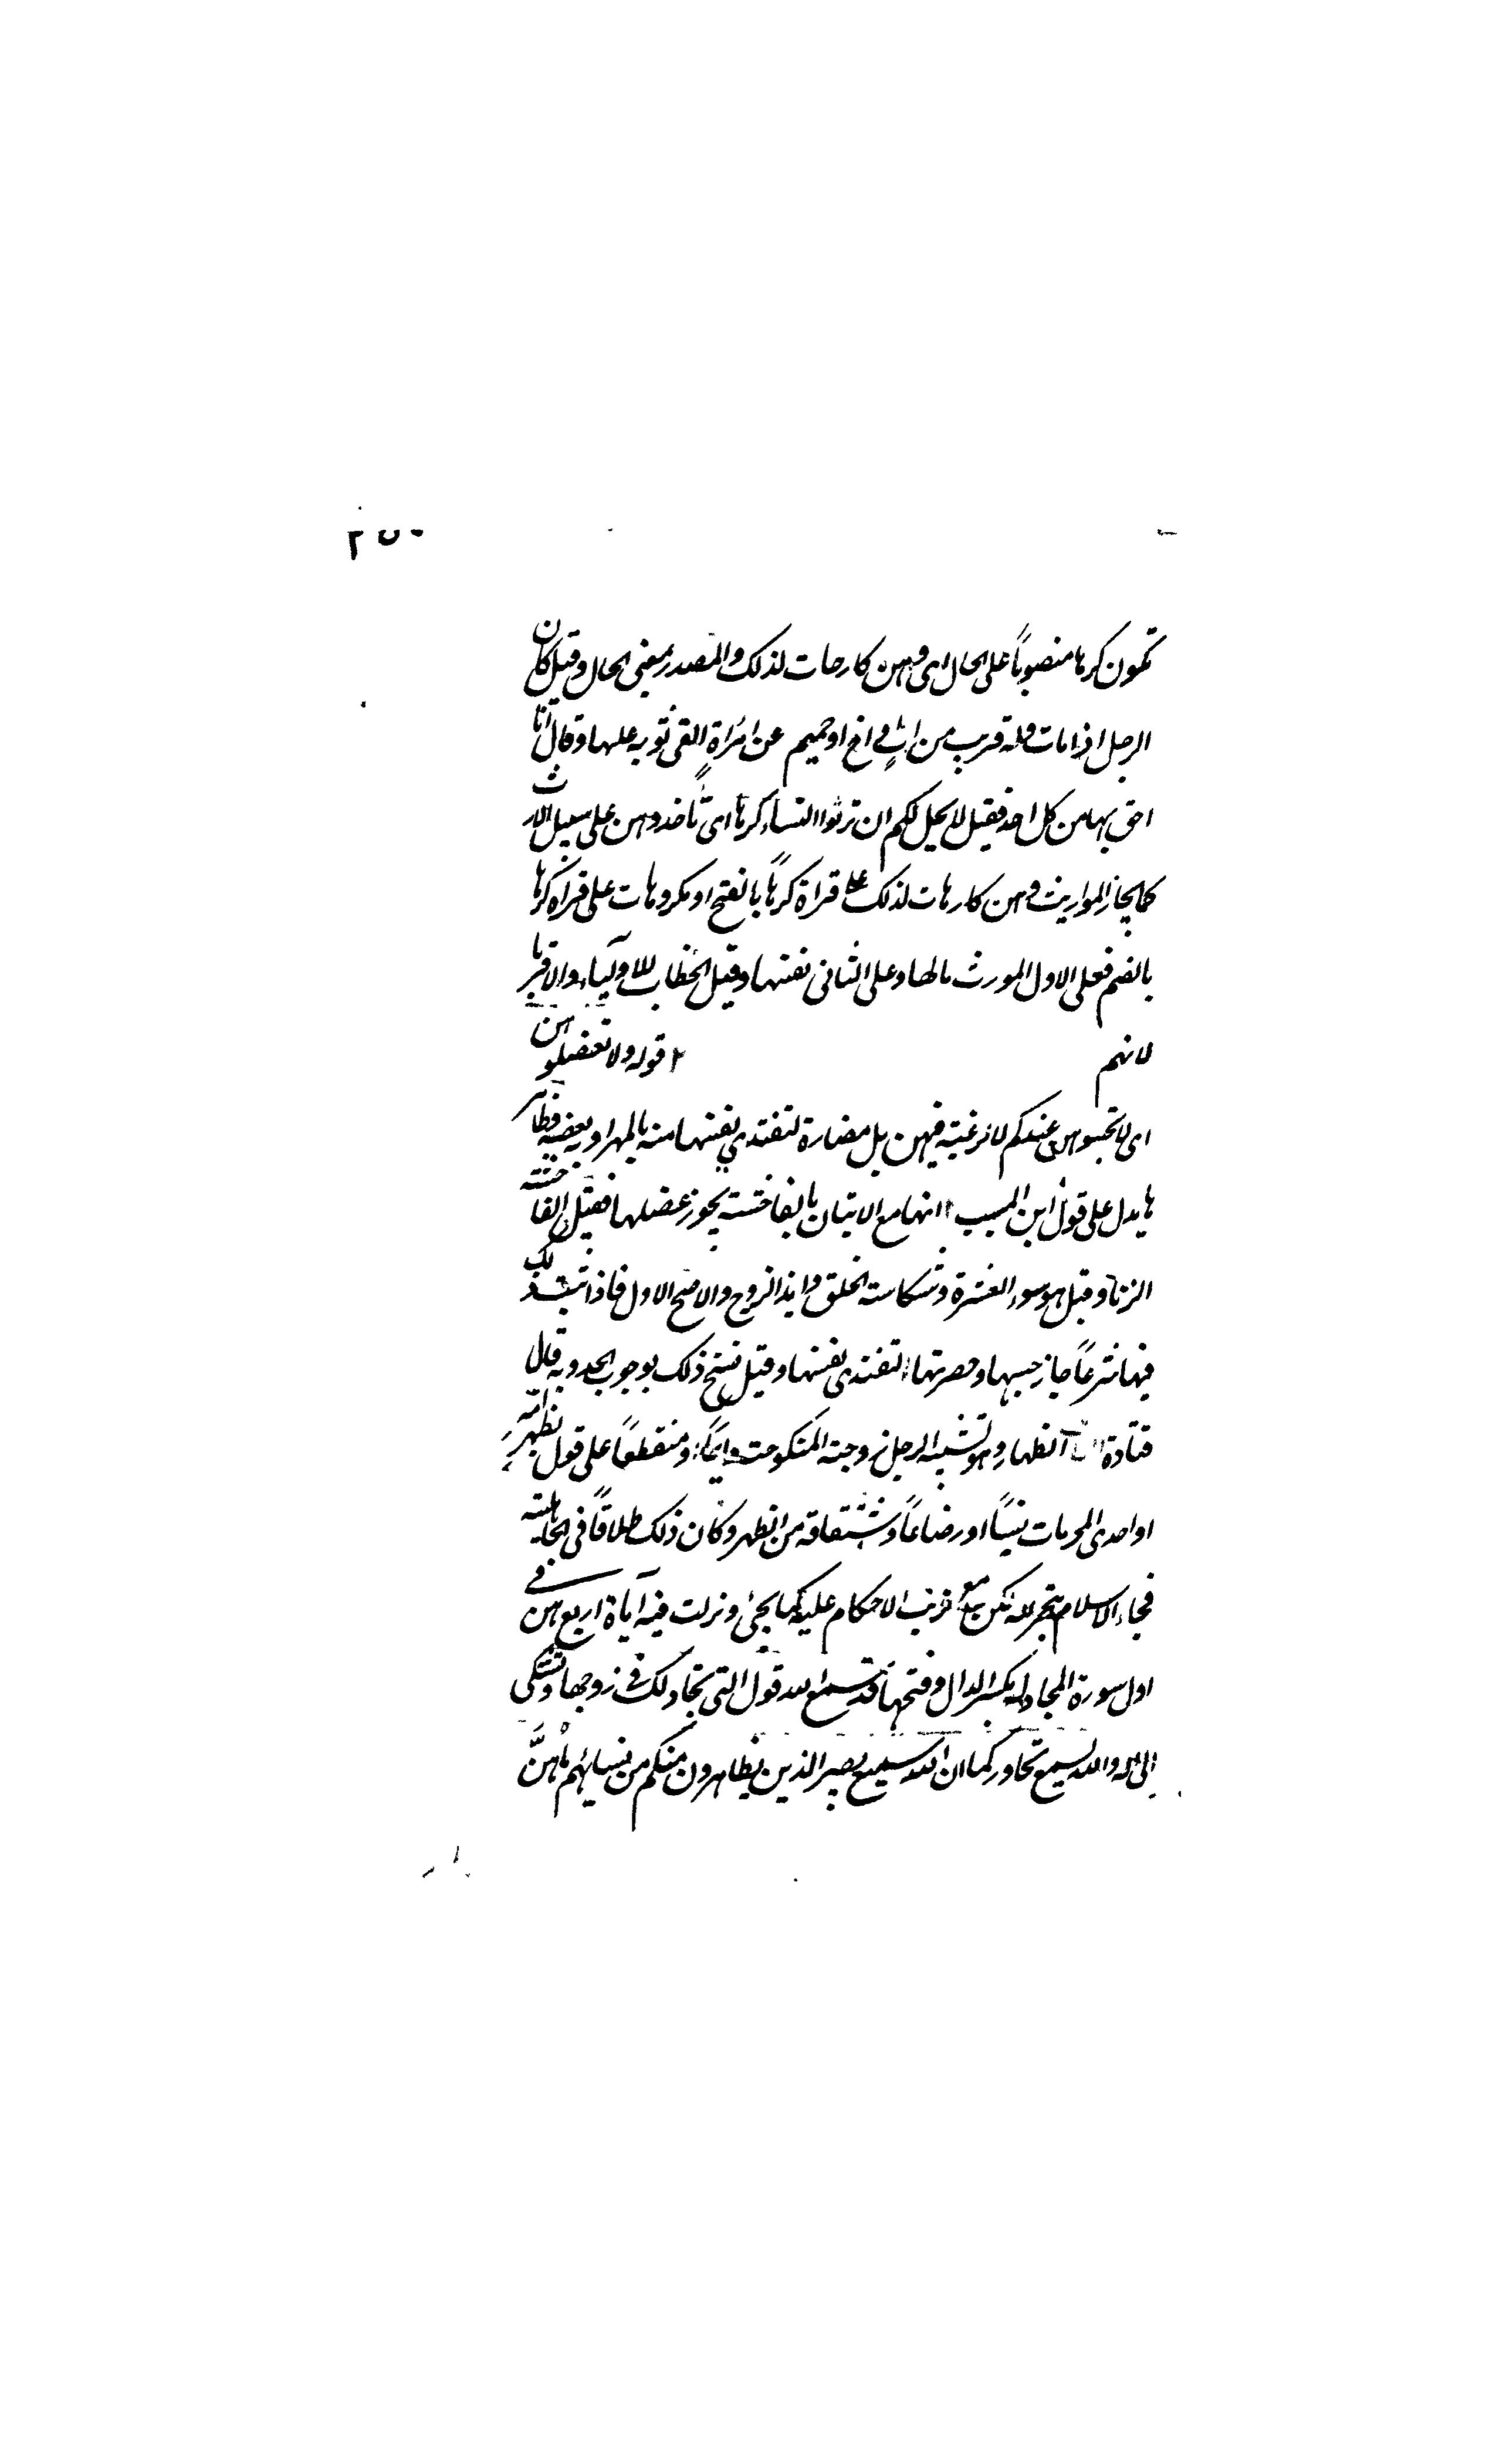 ٢٥٠
تكون كرها منصوباً على الحال اى وهن كارهات لذلك والمصدر بمعنى الحال وقيل كان
الرجل اذا مات وله قريب من اب او اخ او حميم عن امرأة القى ثوبه عليها وقال انا
احق بها من كل احد فقيل لا يحل لكم ان ترثوا النساء كرها اى تأخذوهن على سبيل الارث
كما يجاز المواريث وهن كارهات لذلك على قراة كرهاً بالفتح او مكروهات على قراه كرها
بالضم فعلى الاول المورث مالها وعلى الثانى نفسها وقيل الخطاب للاولياء والاقربا
لانهم ٢ قوله ولا تعضلوهن
اى لا تحبسوهن عندكم لا لرغبة فيهن بل مضارة لتفتدي نفسها منه بالمهر او بعضه فظاهر
ها يدل على قول ابن المسيب انها مع الاتيان بالفاحشة يجوز عضلها فقيل الفاحشة
الزنا وقيل هو سوء العشرة وشكاسة الخلق وايذا الزوج والاصح الاول فاذا ثبت ذلك
فيها شرعاً جاز حبسها وحصرتها لتفتدى نفسها وقيل نسخ ذلك بوجوب الحد وبه قال
قتادة الظهار وهو تشبيه الرجل زوجته المنكوحة دايماً ومنقطعاً على قول بظهر امه
او احدى المحرمات نسباً او رضاعاً واشتقاقه من الظهر وكان ذلك طلاقاً فى الجاهلية
فجاء الاسلام بتحريمه لكن مع ترتب الاحكام عليه كما يجئ ونزلت فيه آياة اربع هن فى
اول سورة المجادلة بكسر الدال وفتحها قد سمع الله قول التى تجادلك فى زوجها وتشتكى
الى الله والله يسمع تحاوركما ان الله سميع بصير الذين يظاهرون منكم من نسائهم ما هنَّ